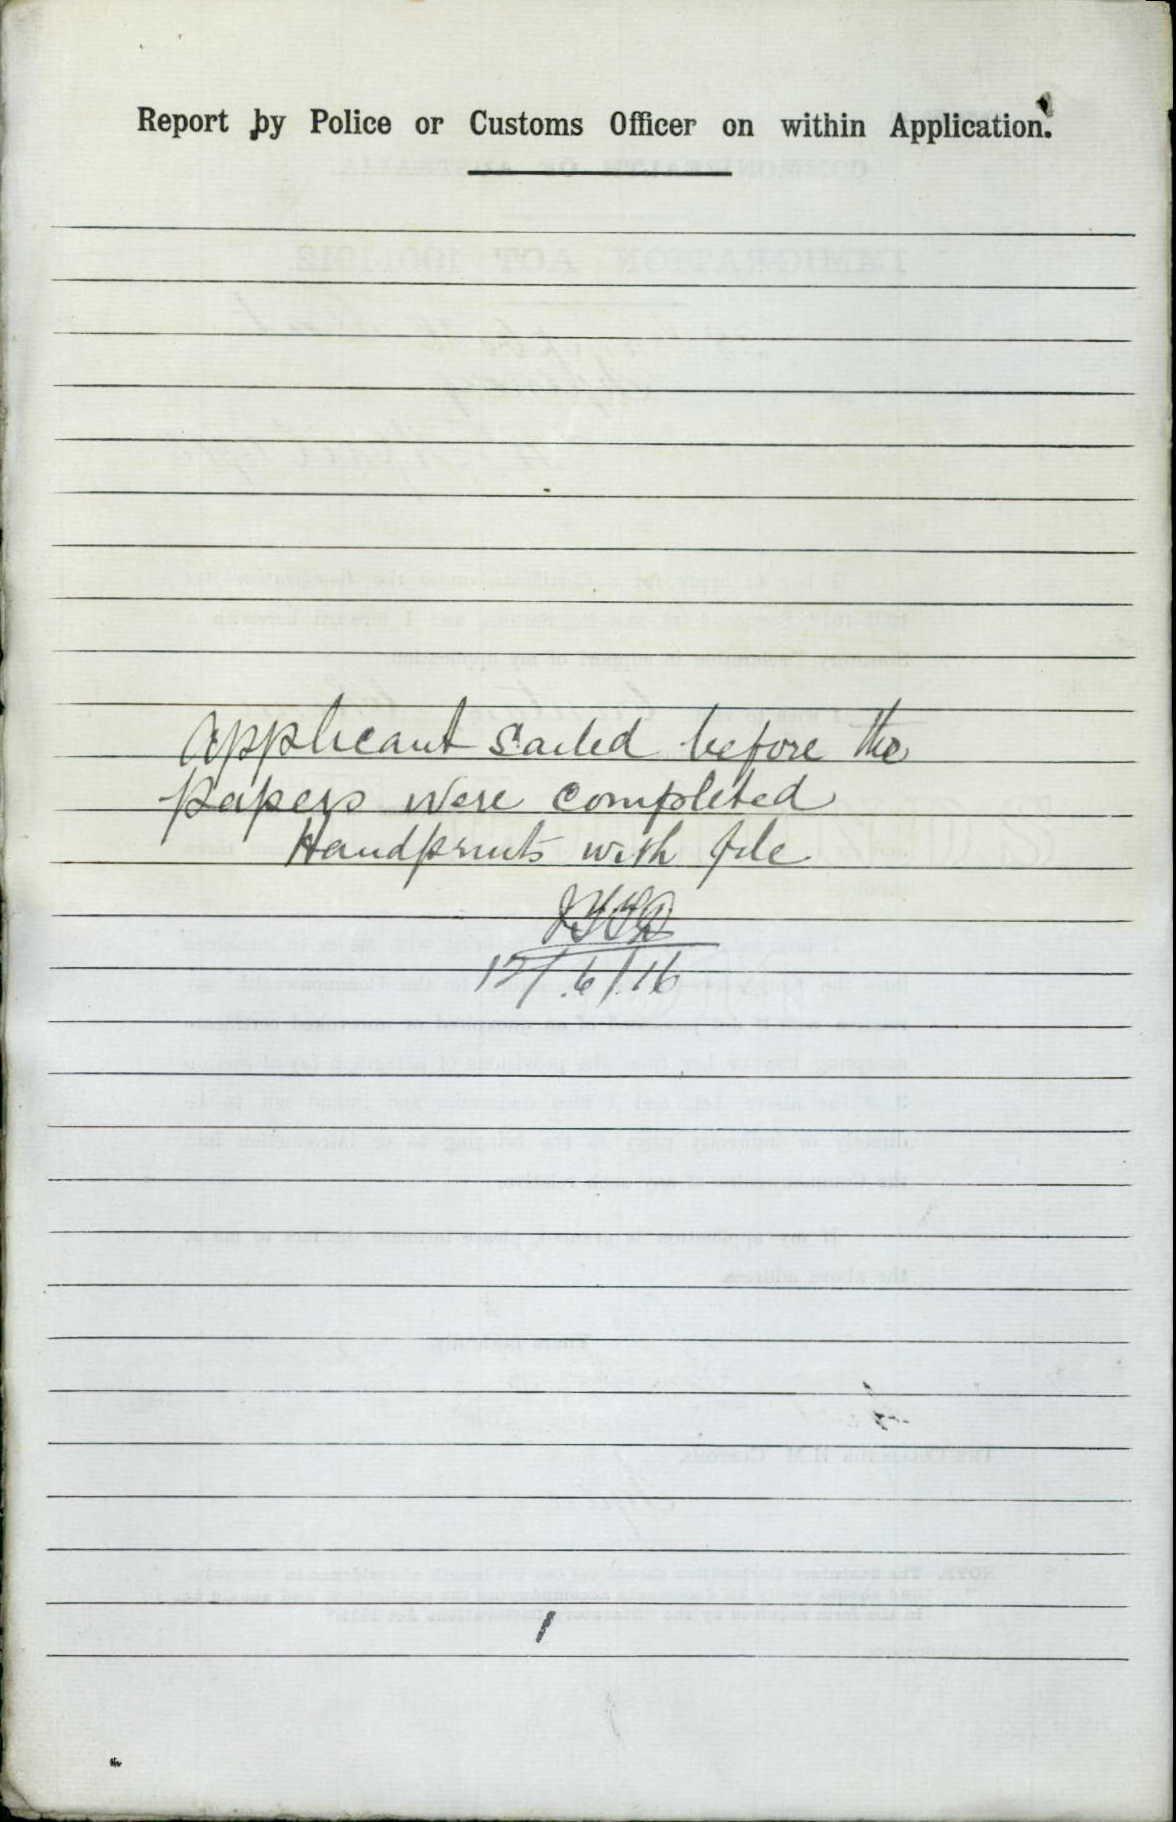 Report by Police or Customs Officer on within Application.
Applicant sailed before the
papers were completed
Handprints with file
12/6/16